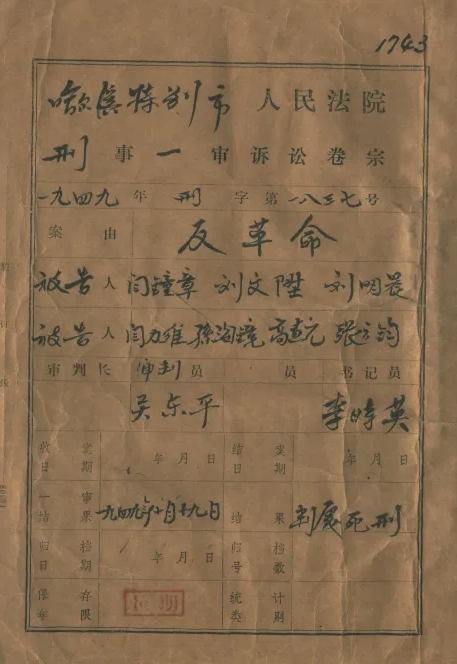 1743
哈尔滨特别市 人民法院
刑事一审诉讼卷宗
一九四九年刑字第一八三七号
案由 反革命
被告人 闫鐘章 刘文陞 刘明晨
被告人 闫力维 孫海鏡 高连元
审判长 审判员 员 书记员
吴东平 李時英
收案日期 年月日 结案日期 年月日
一审结果 一九四九年十月十九日 结果 判處死刑
归档日期 年月日 归档号数
保存年限 统计类别